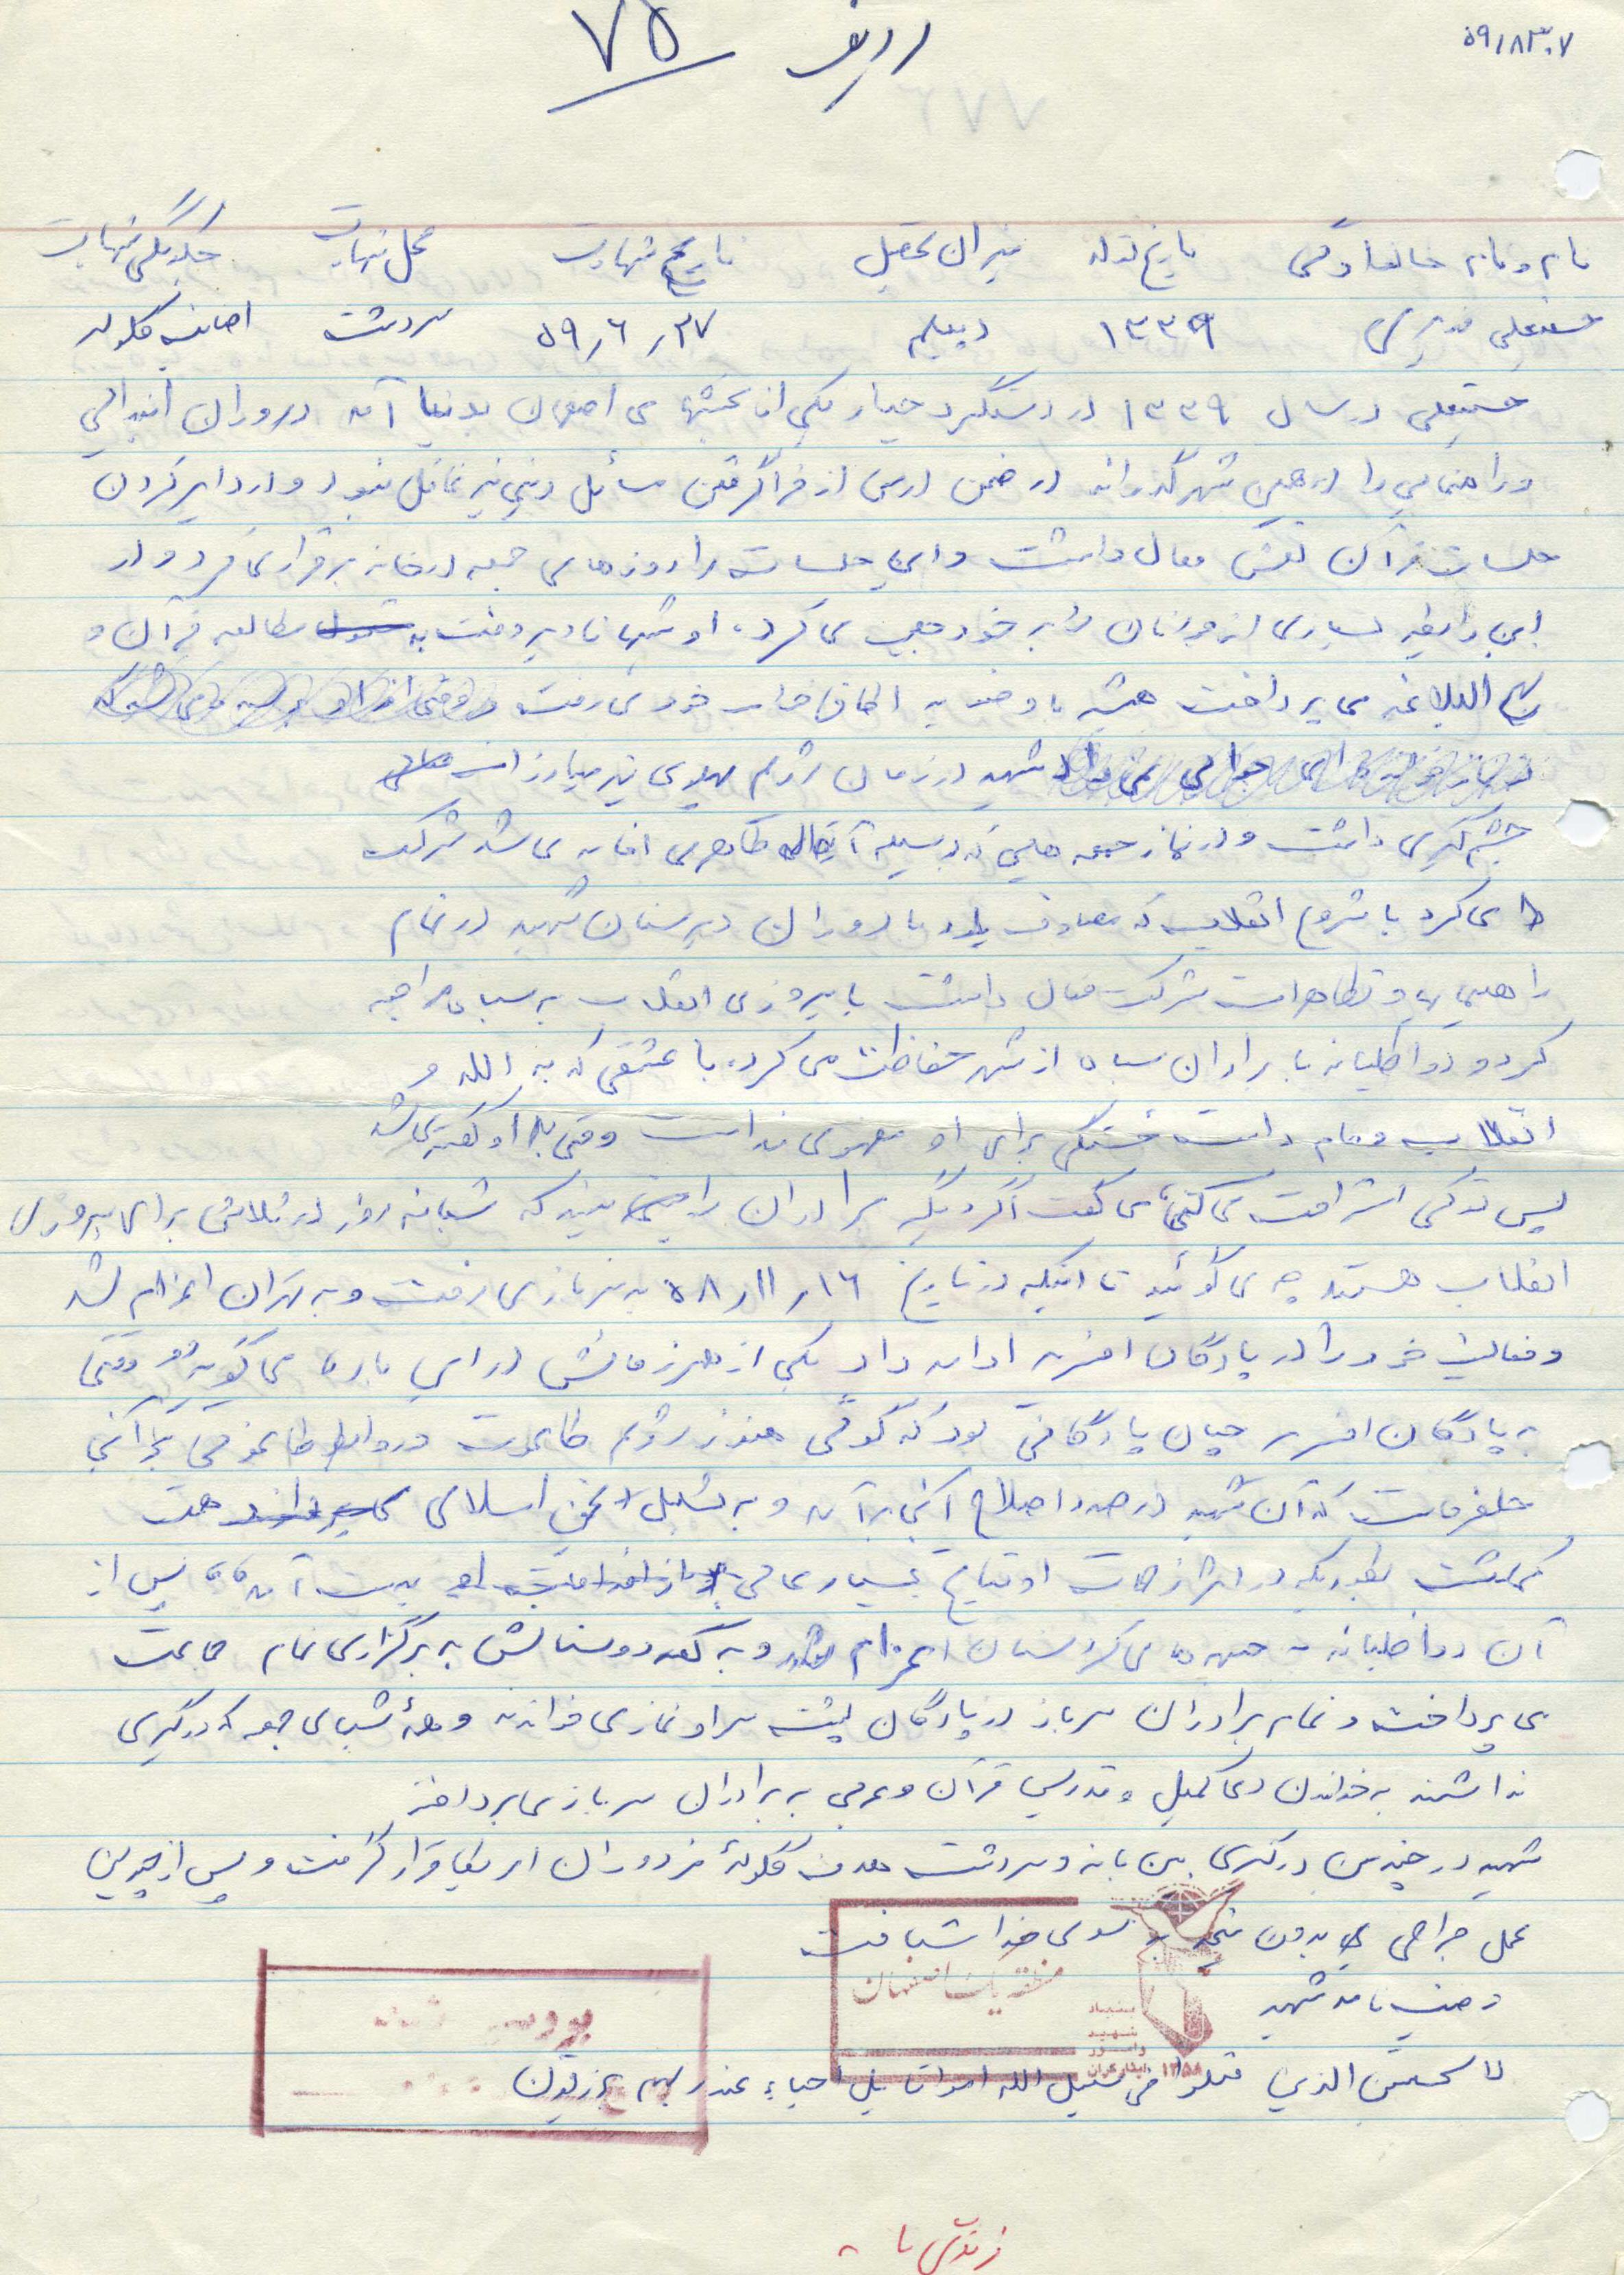 ردیف ۷۵
۵۹۱۸۳۰۷
نام و نام خانوادگی تاریخ تولد میزان تحصیل تاریخ شهادت محل شهادت چگونگی شهادت
حسنعلی ۱۳۳۹ دیپلم ۵۹٫۶٫۲۷ سردشت اصابت گلوله
حسنعلی در سال ۱۳۳۹ در دستگرد خیار یکی از بخشهای اصفهان بدنیا آمد دروران ابتدائی
و راهنمایی را در همین شهر گذراند در ضمن درس از فراگرفتن مسائل دینی نیز غافل نبود و در دایر کردن
جلسات قرآن نقش فعال داشت و این جلسات را روزهای جمعه در خانه برقرار می کرد و از
این رابطه بسیاری از جوانان را به خود جلب می کرد، او شبها تا دیر وقت به مطالعه قرآن و
نهج البلاغه می پرداخت همیشه با وضو به اطاق خواب خود می رفت
شهید در زمان رژیم پهلوی نیز مبارزات
چشم گیری داشت و در نماز جمعه هایی که بوسیله آیت الله طاهری اقامه می شد شرکت
می کرد با شروع انقلاب که مصادف بود با دوران دبیرستان شهید در تمام
راهپیمایی و تظاهرات شرکت فعال داشت با پیروزی انقلاب به سپاه مراجعه
کرد و داوطلبانه با برادران سپاه از شهر حفاظت می کرد، با عشقی که به الله و
انقلاب و امام داشت خستگی برای او مفهومی نداشت وقتی به او گفته می شد
پس تو کی استراحت می کنی، می گفت اگر دیگر برادران را ببینید که شبانه روز در تلاش برای پیروزی
انقلاب هستند چه می گوئید تا اینکه در تاریخ ۱۶٫۱۱٫۵۸ به سربازی رفت و به تهران اعزام شد
و فعالیت خود را در پادگان افسریه ادامه داد یکی از همرزمانش در این باره می گوید وقتی
به پادگان افسریه جهان پادگانی بود که گوئی هنوز رژیم طاغوت و روابط طاغوتی بر آنجا
حکمفرماست که آن شهید در صدد اصلاح آنجا برآمد و به تشکیل انجمن اسلامی همت
گماشت بطوریکه در اثر زحمات او نتایج بسیار عالی بدست آمد،، پس از
آن داوطلبانه به جبهه های کردستان اعزام شد و به گفته دوستانش به برگزاری نماز جماعت
می پرداخت و تمام برادران سرباز در پادگان پشت سر او نماز می خواندند و همۀ شبهای جمعه که درگیری
نداشتند به خواندن دعای کمیل و تدریس قرآن و عربی به برادران سرباز می پرداخت
شهید در چندمین درگیری بین بانه و سردشت هدف گلولۀ مزدوران امریکا قرار گرفت و پس از چندین
عمل جراحی بدون نتیجه به سوی خدا شتافت
وصیت نامه شهید
لا تحسبن الذین قتلوا فی سبیل الله امواتا بل احیاء عند ربهم یرزقون
منطقه یک اصفهان
بنیاد
شهید
و امور
ایثارگران
۱۳۵۸
بررسی شد